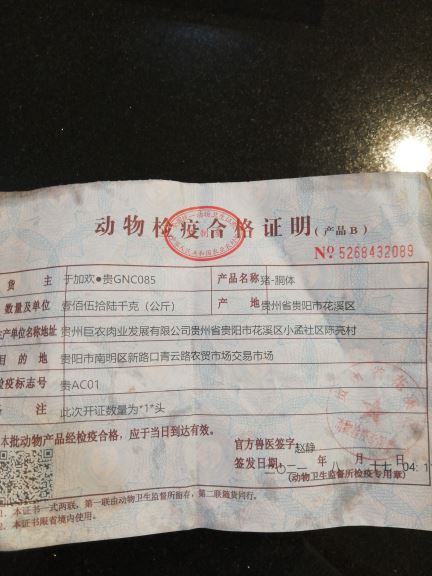 动物检疫合格证明(产品B)
№ 5268432089
货 主 于加欢●贵GNC085 产品名称 猪-胴体
数量及单位 壹佰伍拾陆千克（公斤） 产 地 贵州省贵阳市花溪区
生产单位名称地址 贵州巨农肉业发展有限公司贵州省贵阳市花溪区小孟社区陈亮村
目 的 地 贵阳市南明区新路口青云路农贸市场交易市场
检疫标志号 贵AC01
备 注 此次开证数量为*1*头
本批动物产品经检疫合格，应于当日到达有效。
官方兽医签字 赵静
签发日期 二〇二一 年 八 月 十七 04:1
(动物卫生监督所检疫专用章)
1. 本证书一式两联，第一联由动物卫生监督所留存，第二联随货同行。
2. 本证书限省境内使用。